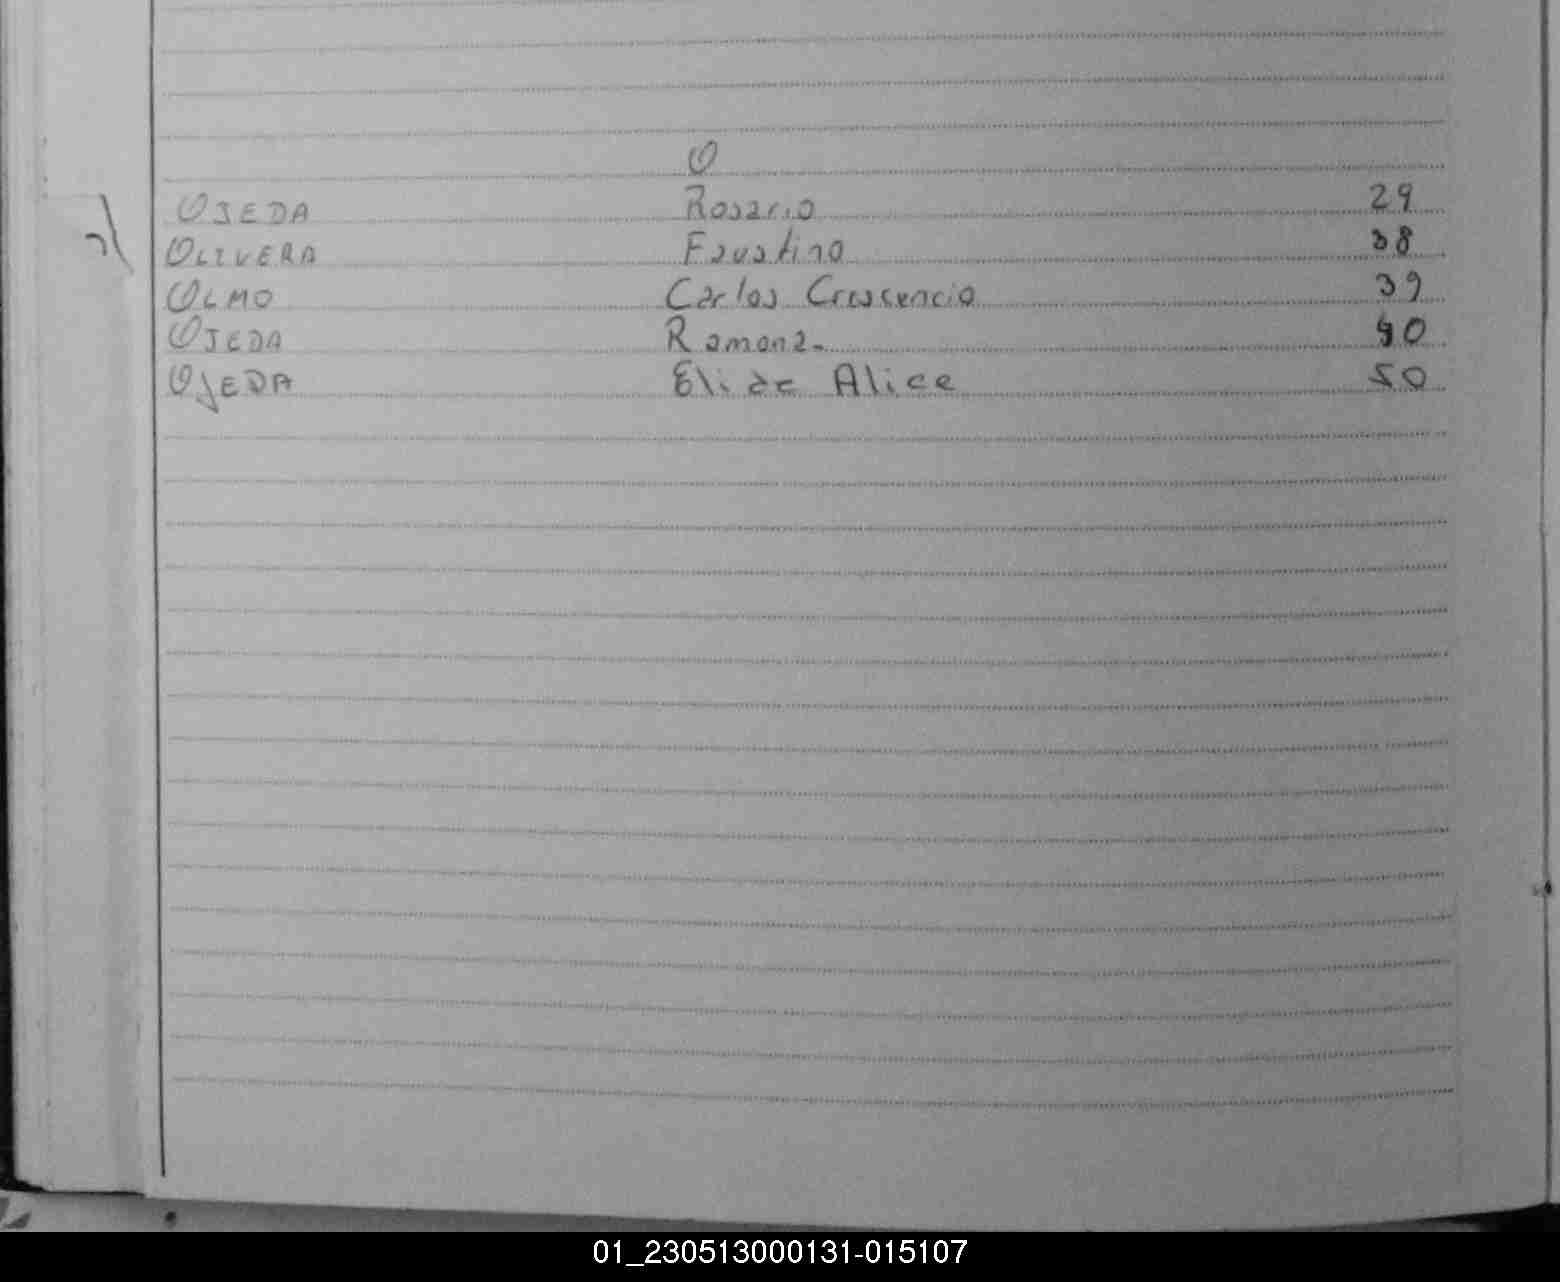 O
OJEDA Rosario 29
OLIVERA Faustino 38
OLMO Carlos Crescencio 39
OJEDA Ramona 40
OJEDA Elide Alice 50
01_230513000131-015107